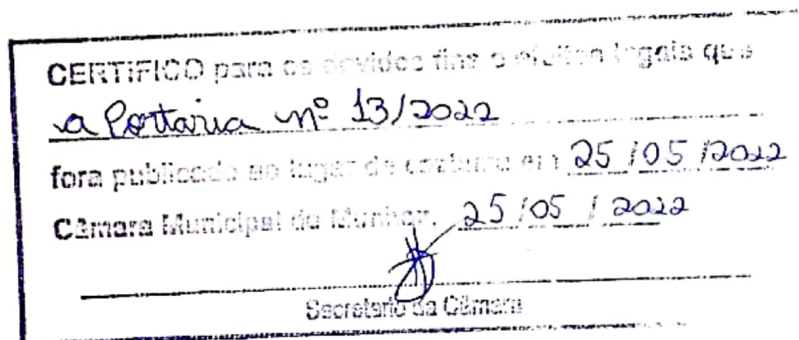 CERTIFICO para os devidos fins e efeitos legais que
a Portaria nº 13/2022
fora publicado no lugar de costume em 25/05/2022
Câmara Municipal de 25/05/2022
Secretario da Câmara